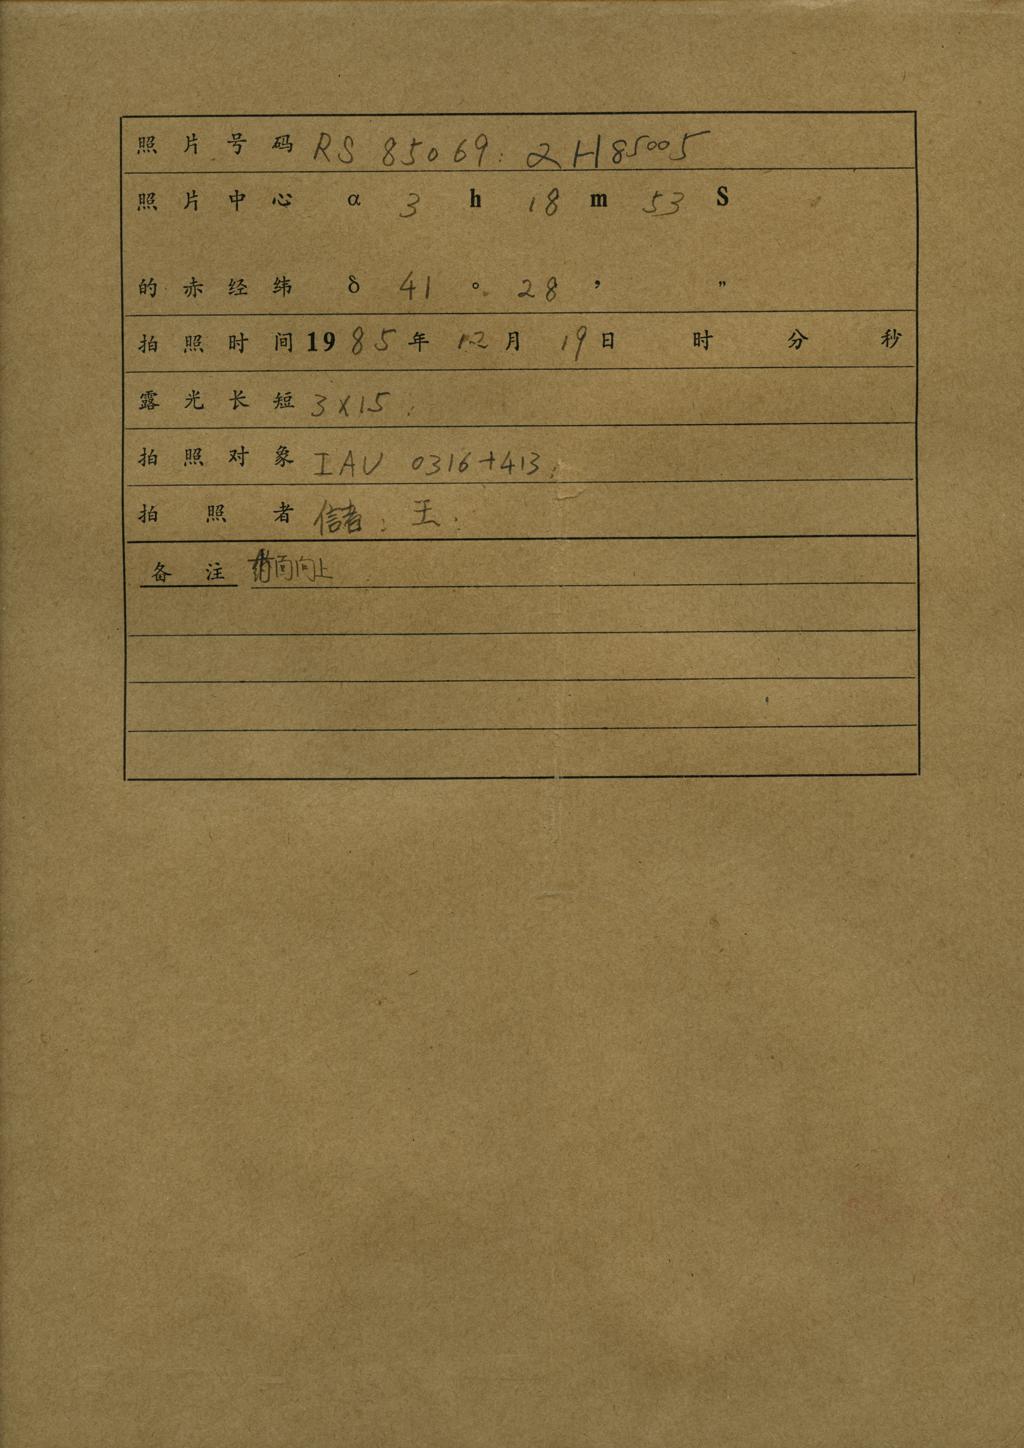 照片号码 RS 85069: 2H85005
照片中心 α 3 h 18 m 53 S
的赤经纬 δ 41 ° 28 ′ ″
拍照时间 1985年 12月 19日 时 分 秒
露光长短 3×15
拍照对象 IAU 0316+413
拍照者 信者; 王
备注 药面向上